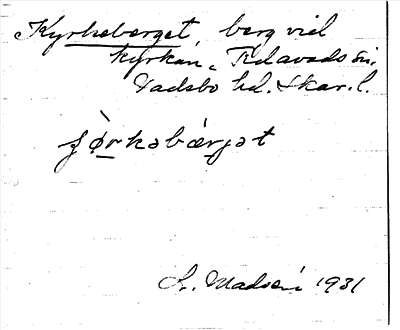 Kyrkeberget, berg vid
kyrkan, Fredsvads sn.
Vadsbo hd. Skar. l.
ʃò̤rkəbærjət
L. Madsén 1931